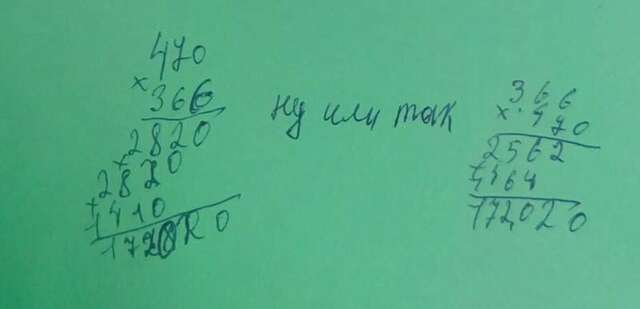 470
× 366
2820
× 2820
× 1410
172020
ну или так
366
× 470
2562
1464
172020